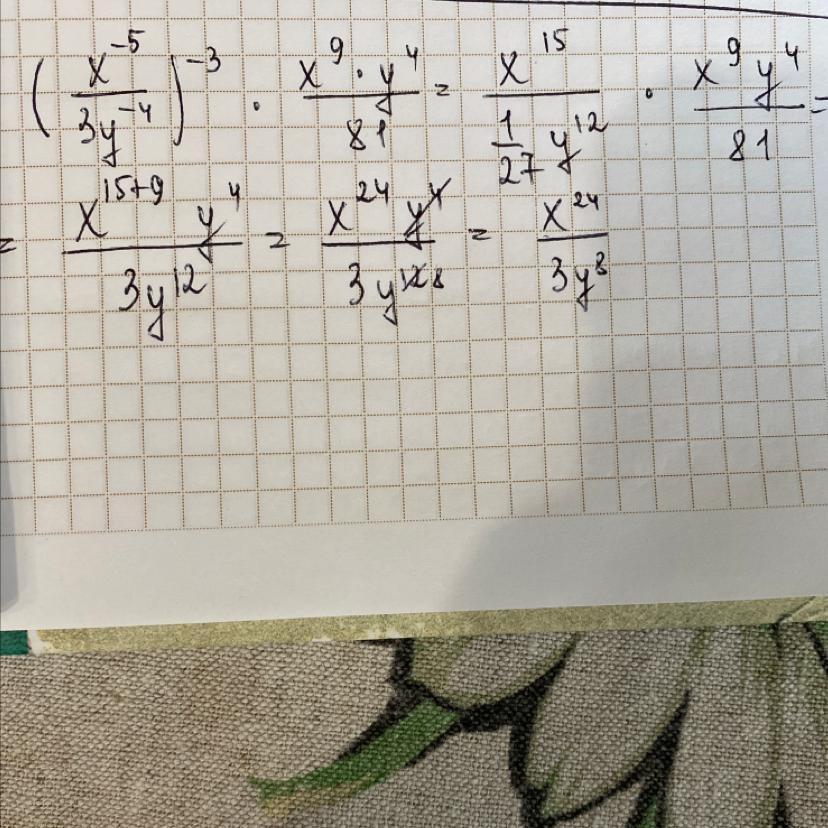 (x^-5 / 3y^-4)^-3 · x^9 · y^4 / 81 = x^15 / (1/27 y^12) · x^9 y^4 / 81 =
= x^15+9 y^4 / 3y^12 = x^24 y^4 / 3y^12 8 = x^24 / 3y^8